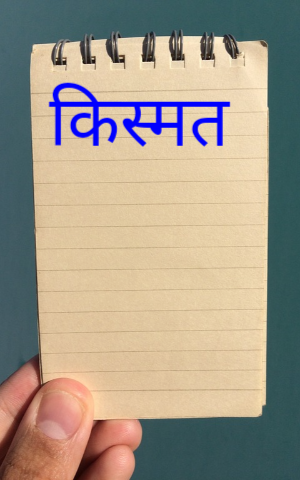 किस्मत